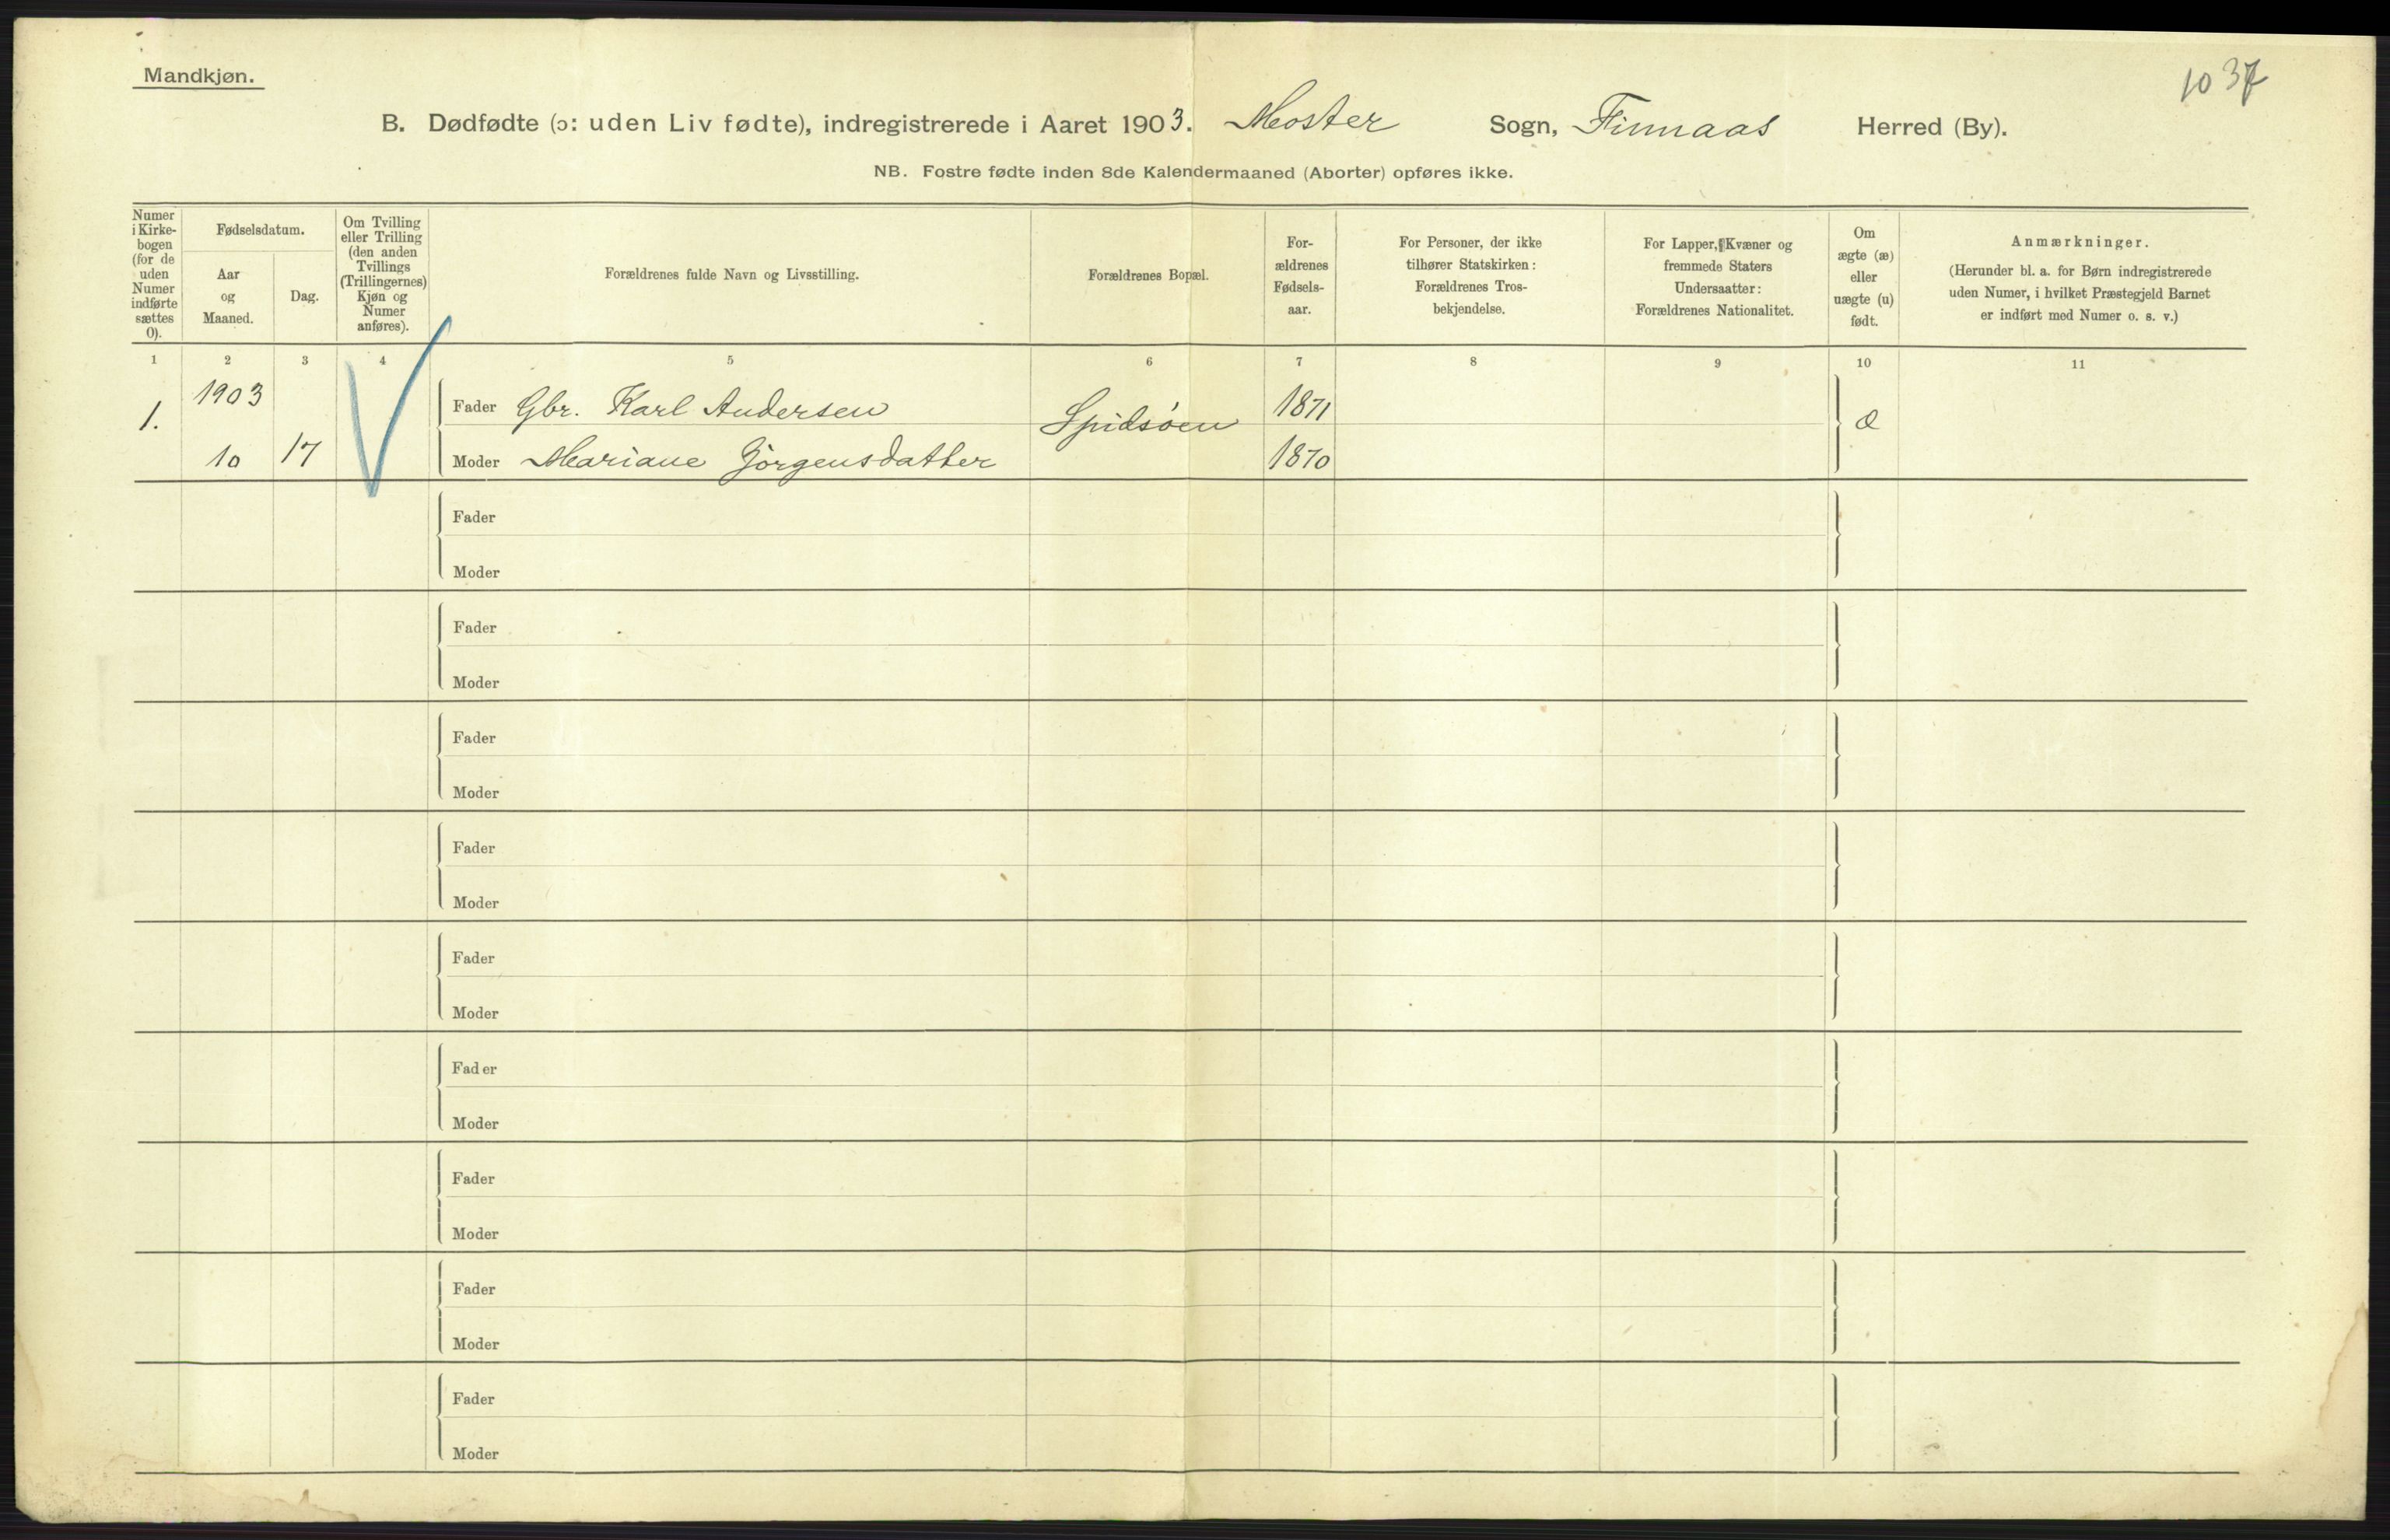 Mandkjøn.
1037
B. Dødfødte (ɔ: uden Liv fødte), indregistrerede i Aaret 1903. Moster Sogn, Finnaas Herred (By).
NB. Fostre fødte inden 8de Kalendermaaned (Aborter) opføres ikke.
Numer
i Kirke-
bogen
(for de
uden
Numer
indførte
sættes
0).
Fødselsdatum.
Aar
og
Maaned.
Dag.
Om Tvilling
eller Trilling
(den anden
Tvillings
(Trillingernes)
Kjøn og
Numer
anføres).
Forældrenes fulde Navn og Livsstilling.
Forældrenes Bopæl.
For-
ældrenes
Fødsels-
aar.
For Personer, der ikke
tilhører Statskirken:
Forældrenes Tros-
bekjendelse.
For Lapper, Kvæner og
fremmede Staters
Undersaatter:
Forældrenes Nationalitet.
Om
ægte (æ)
eller
uægte (u)
født.
Anmærkninger.
(Herunder bl. a. for Børn indregistrerede
uden Numer, i hvilket Præstegjeld Barnet
er indført med Numer o. s. v.)
1 2 3 4 5 6 7 8 9 10 11
1. 1903 Fader Gbr. Karl Andersen Spidsöen 1871 æ
10 17 Moder Mariane Jörgensdatter 1870
Fader
Moder
Fader
Moder
Fader
Moder
Fader
Moder
Fader
Moder
Fader
Moder
Fader
Moder
Fader
Moder
Fader
Moder